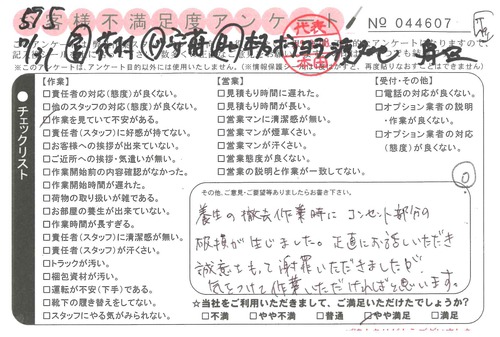 575
お客様不満足度アンケート
No 044607
代表
※このアンケートは、アンケート目的以外には使用いたしません。
チェックリスト
【作業】
□責任者の対応(態度)が良くない。
□他のスタッフの対応(態度)が良くない。
□作業を見ていて不安がある。
□責任者(スタッフ)に好感が持てない。
□お客様への挨拶が出来ていない。
□ご近所への挨拶・気遣いが無い。
□作業開始前の内容確認がなかった。
□作業開始時間が遅れた。
□荷物の取り扱いが雑である。
□お部屋の養生が出来ていない。
□作業時間が長すぎる。
□責任者(スタッフ)に清潔感が無い。
□責任者(スタッフ)が汗くさい。
□トラックが汚い。
□梱包資材が汚い。
□運転が不安(下手)である。
□靴下の履き替えをしてない。
□スタッフにやる気がみられない。
【営業】
□見積もり時間に遅れた。
□見積もり時間が長い。
□営業マンに清潔感が無い。
□営業マンが煙草くさい。
□営業マンが汗くさい。
□営業態度が良くない。
□営業の説明と作業が一致してない。
【受付・その他】
□電話の対応が良くない。
□オプション業者の説明・作業が良くない。
□オプション業者の対応(態度)が良くない。
その他、ご意見・ご要望等ありましたらお書き下さい。
養生の撤去作業時にコンセント部分の
破損が生じました。正直にお話しいただき
誠意をもって謝罪いただきましたが
気をつけて作業いただければと思います。
☆当社をご利用いただきまして、ご満足いただけたでしょうか?
□不満 □やや不満 □普通 □やや満足 □満足